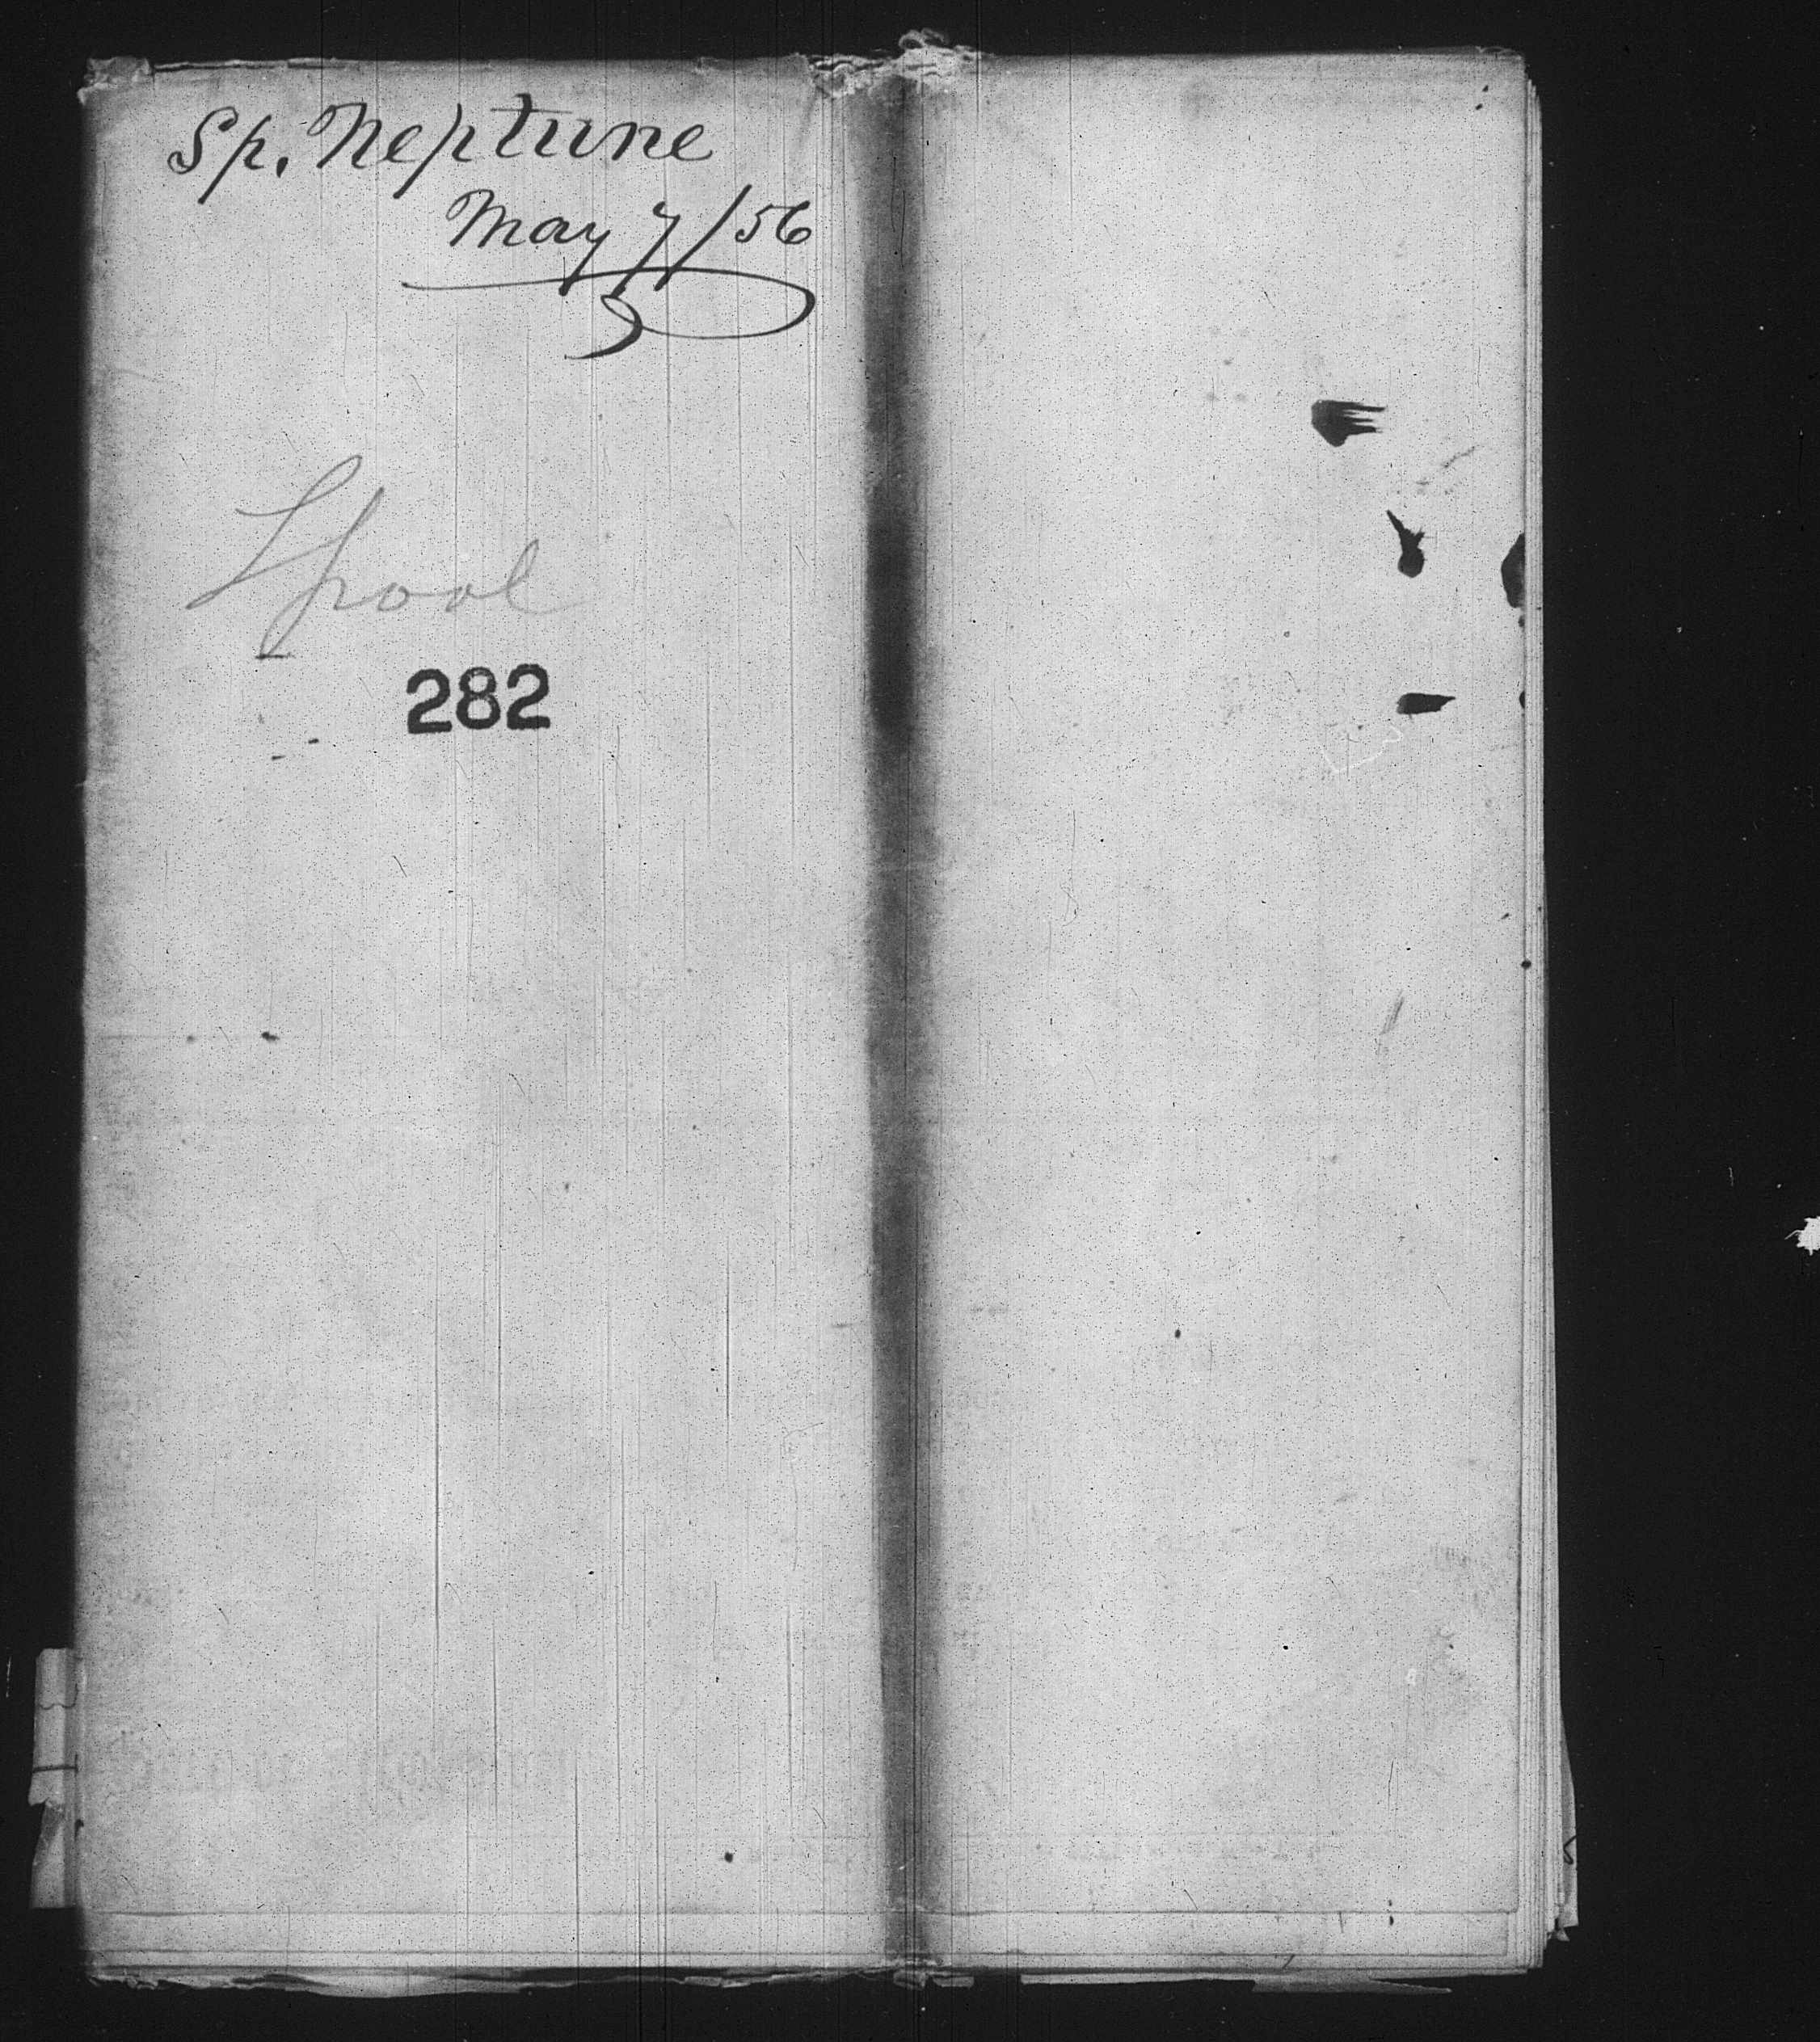 Sp. Neptune
May 7/56
Lpool
282